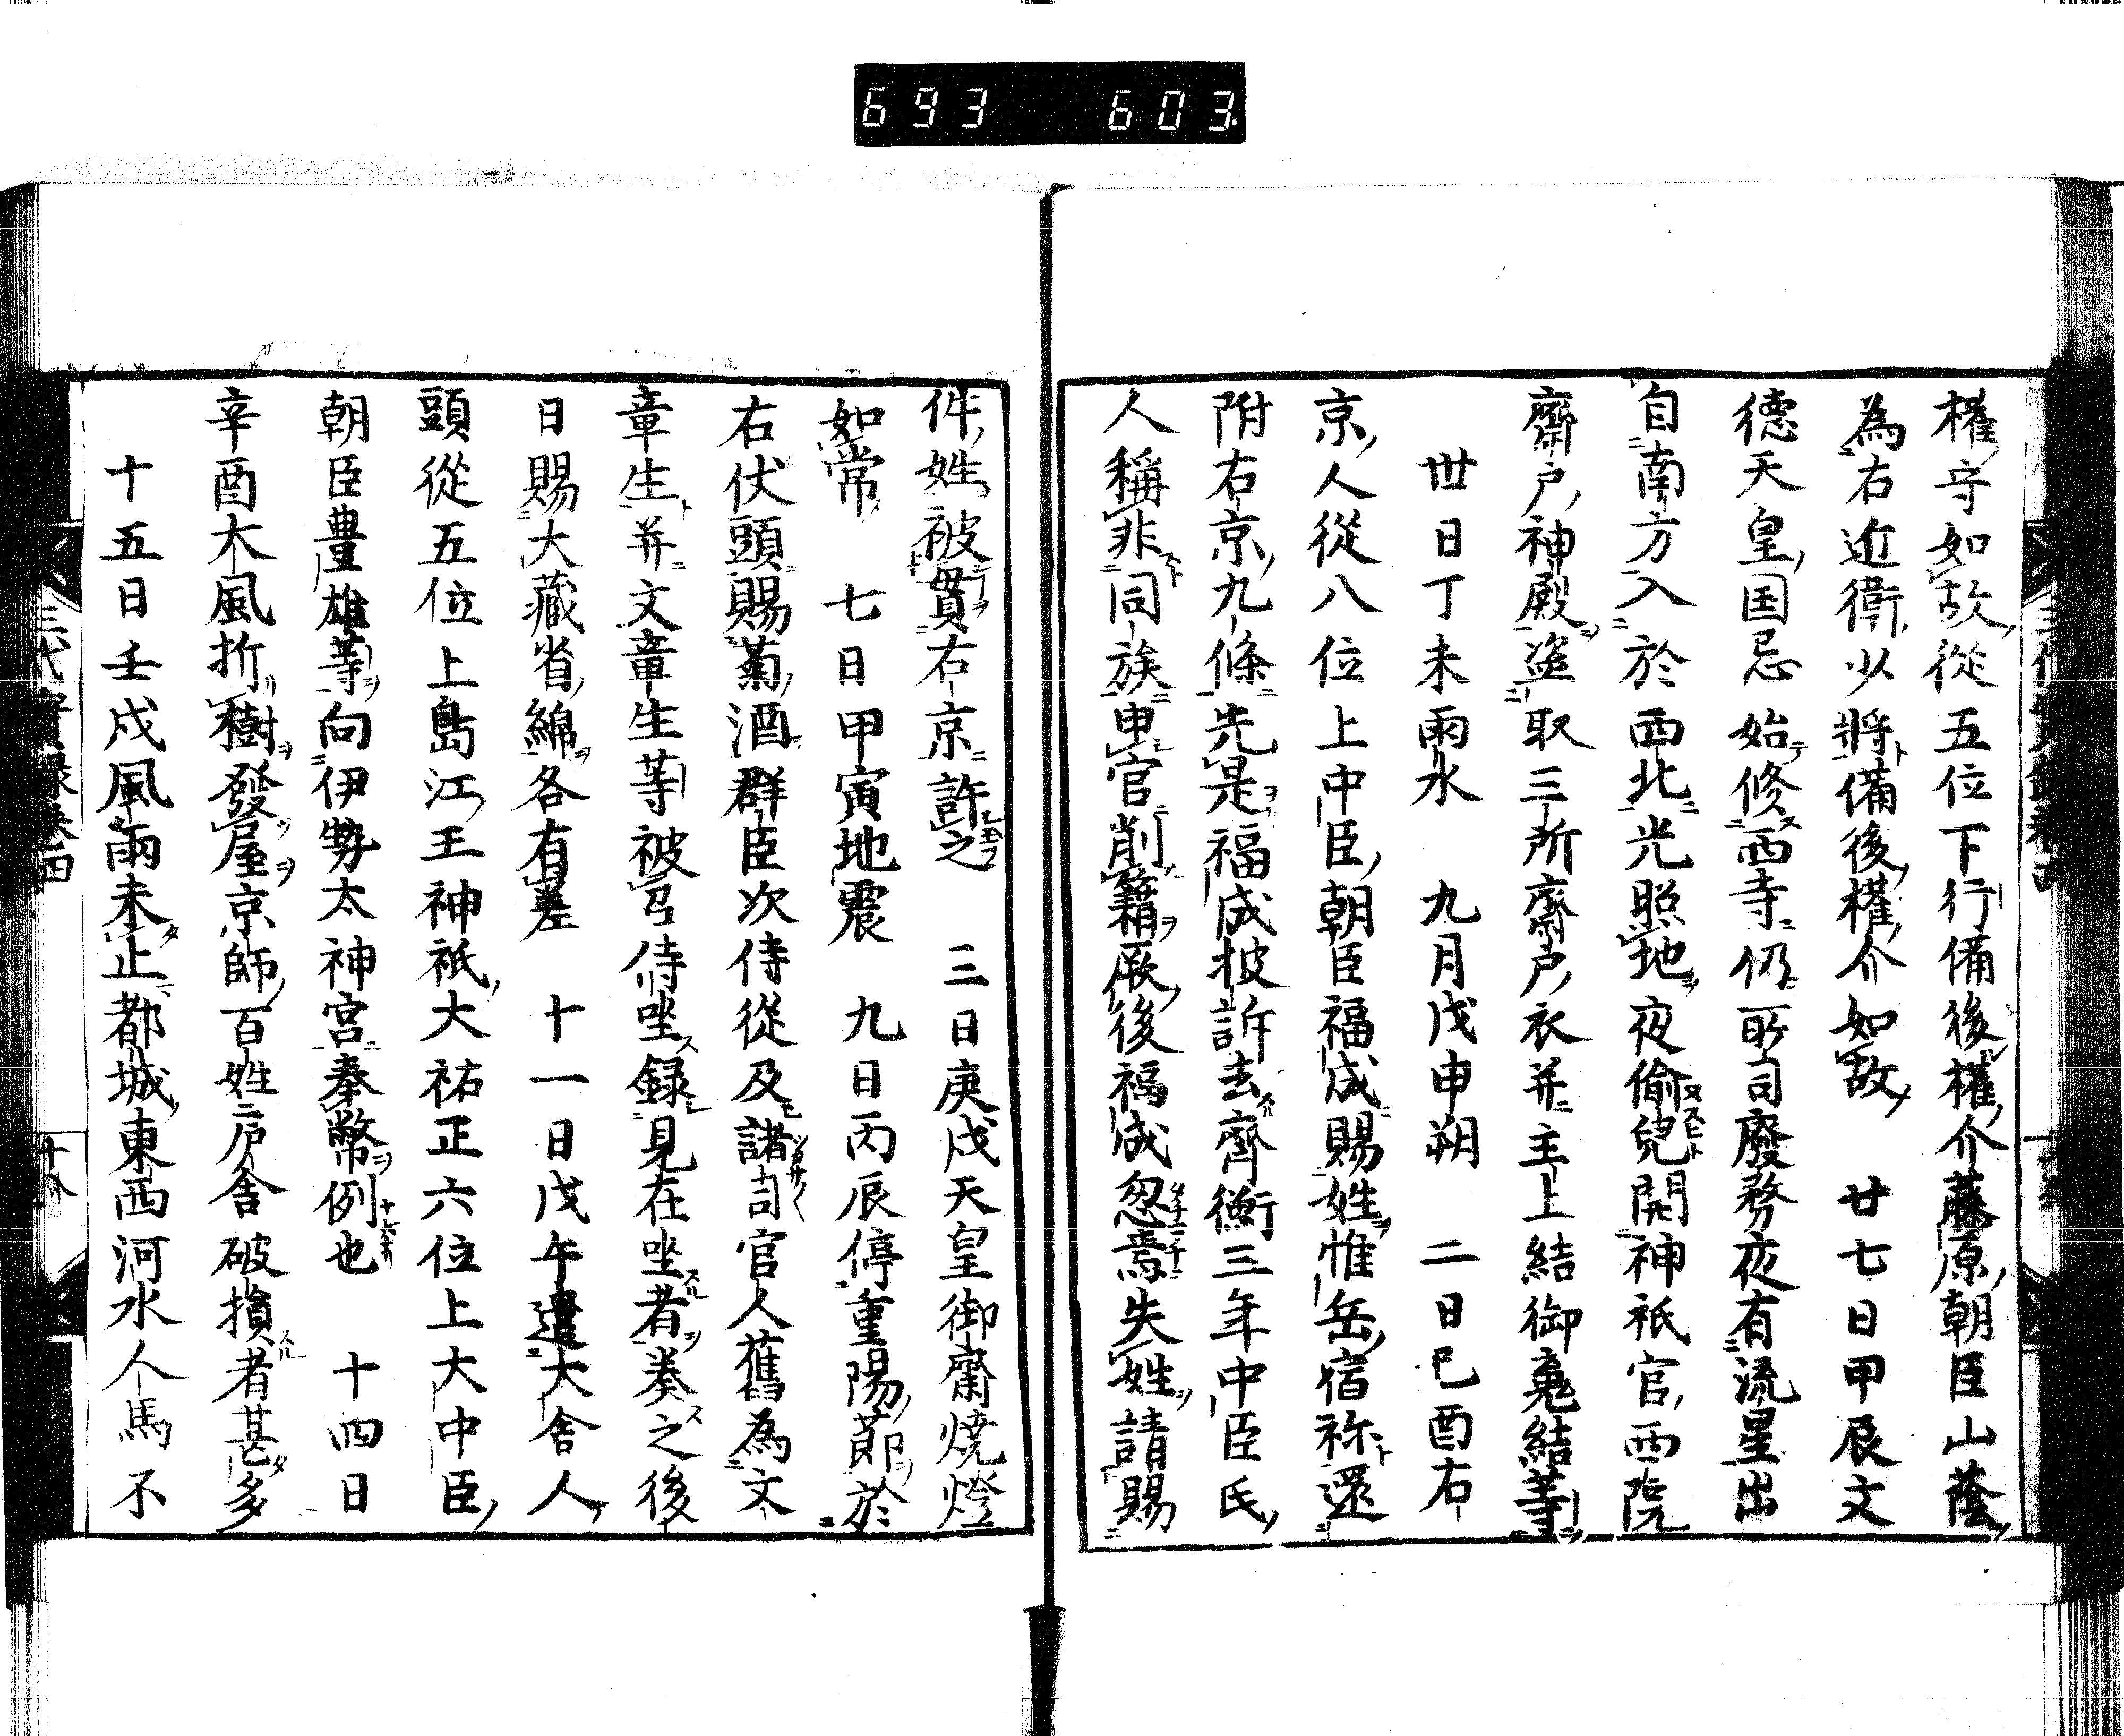 693 603
權守如故從五位下行備後權介藤原朝臣山蔭
為右近衛少將備後權介如故 廿七日甲辰文
德天皇国忌始修西寺仍所司廢務夜有流星出
自南方入於西北光照地夜偷兒開神祇官西院
齋戶神殿盜取三所齋戶衣并主上結御䰟結等
丗日丁未雨水 九月戊申朔 二日己酉右
京人從八位上中臣朝臣福成賜姓惟岳宿祢還
附右京九條先是福成披訴去齊衡三年中臣氏
人稱非同族申官削籍厥後福成忽焉失姓請賜
件姓被貫右京許之 三日庚戌天皇御齋燒燈
如常 七日甲寅地震 九日丙辰停重陽節於
右仗頭賜菊酒群臣次侍從及諸司官人舊為文
章生并文章生等被召侍坐錄見在坐者奏之後
日賜大藏省綿各有差 十一日戊午遣大舍人
頭從五位上島江王神祇大祐正六位上大中臣
朝臣豊雄等向伊勢太神宮奉幣例也 十四日
辛酉大風折樹發屋京師百姓戸舍破損者甚多
十五日壬戌風雨未止都城東西河水人馬不
三代實録卷四
十八